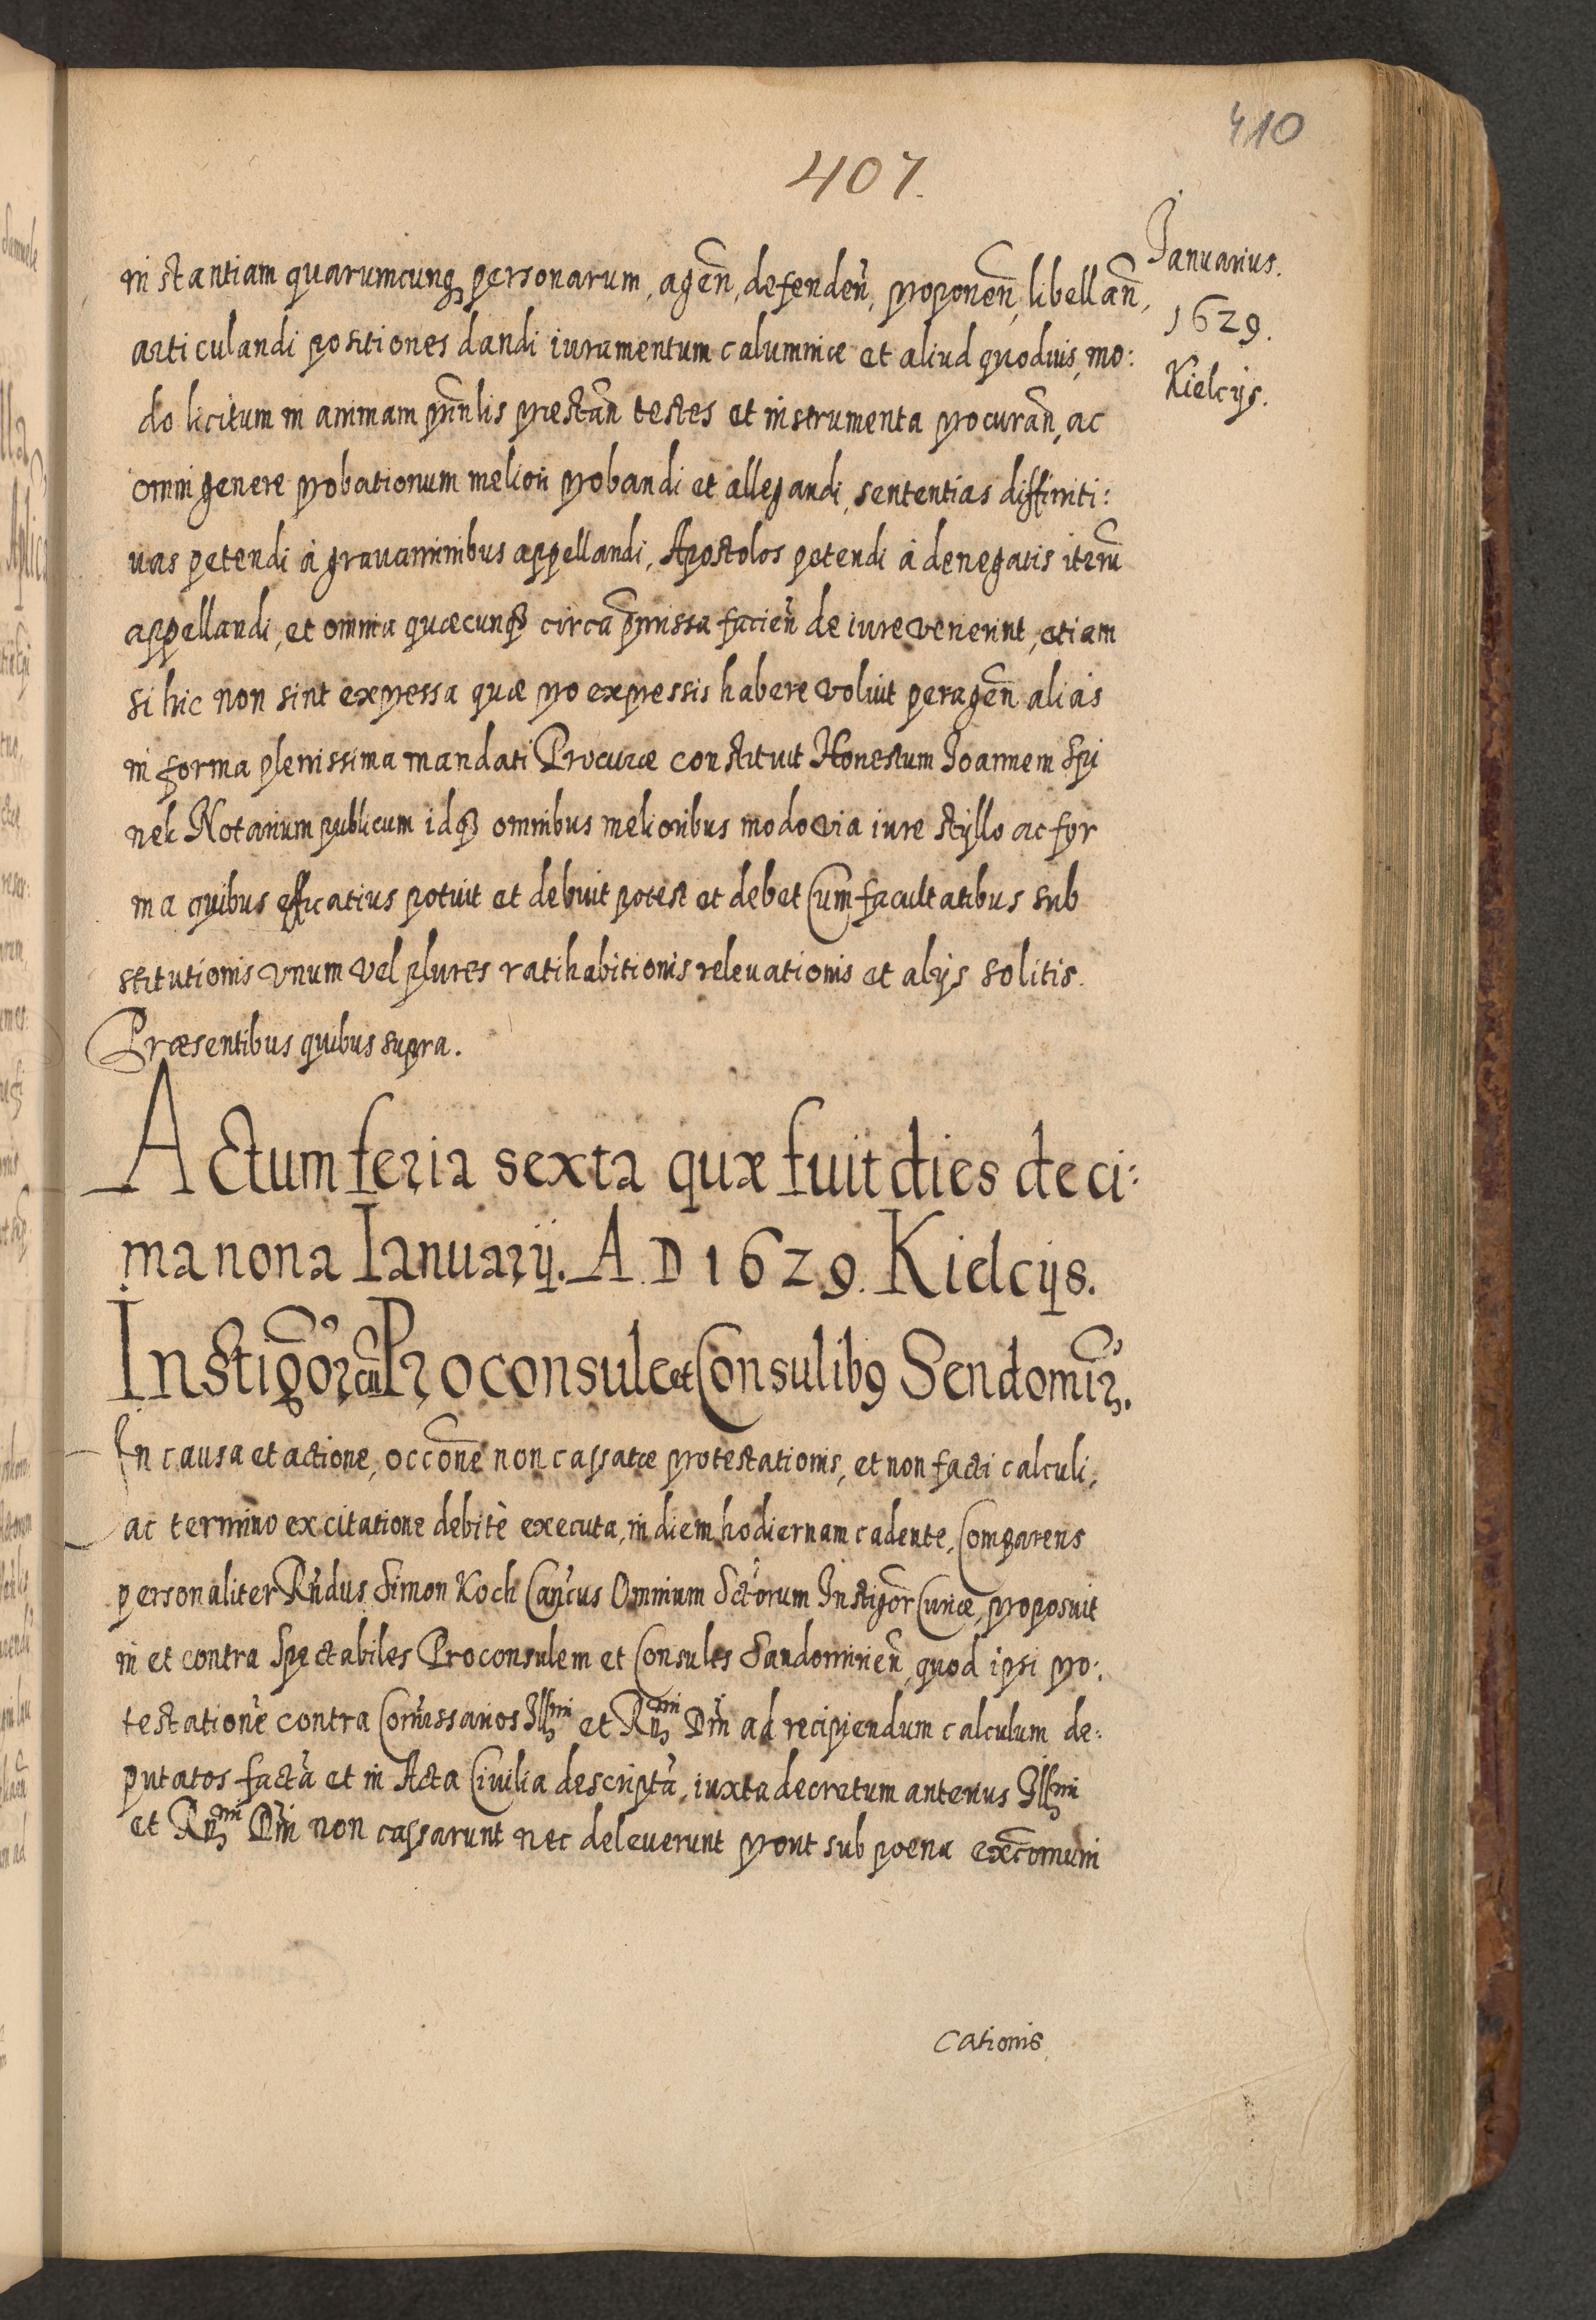 410
407.
Januarius.
1629.
Kielcijs.
instantiam quarumcunq personarum, agen̄, defenden̄, proponen̄, libellan̄,
articulandi positiones dandi iuramentum calumniæ et aliud quoduis, mo:
do licitum in animam prin̄lis præstan̄ testes et instrumenta procuran̄, ac
omni genere probationum meliori probandi et allegandi, sententias diffiniti:
uas petendi à grauaminibus appellandi, Apostolos petendi à denegatis iterū
appellandi, et omnia quæcunq circa p̄missa facien̄ de iure venerint, etiam
si hic non sint expressa quæ pro expressis habere voluit peragen̄ alias
in forma plenissima mandati Procuræ constituit Honestum Joannem Spi
nek Notarium publicum idq omnibus melioribus modo via iure styllo ac for
ma quibus efficatius potuit et debuit potest et debet Cum facultatibus sub
stitutionis vnum vel plures ratihabitionis releuationis et alijs solitis.
Præsentibus quibus supra.
Actum feria sexta quæ fuit dies deci:
ma nona Ianuarij. A. D 1629. Kielcijs.
Instigor cū Proconsule et Consulib9 Sendomir.
In causa et actione, occōne non cassatæ protestationis, et non facti calculi,
ac termino ex citatione debitè executa, in diem hodiernam cadente, Comparens
personaliter Rn̄dus Simon Koch Can̄cus Omnium Sctorum Instigor Curiæ, proposuit
in et contra Spectabiles Proconsulem et Consules Sandomirien̄, quod ipsi pro:
testationē contra Com̄issarios Illmi et Rn̄mi Dn̄i ad recipiendum calculum de:
putatos factā et in Acta Ciuilia descriptā, iuxta decretum anterius Illmi
et Rn̄mi Dn̄i non cassarunt nec deleuerunt prout sub poena excōmuni
cationis